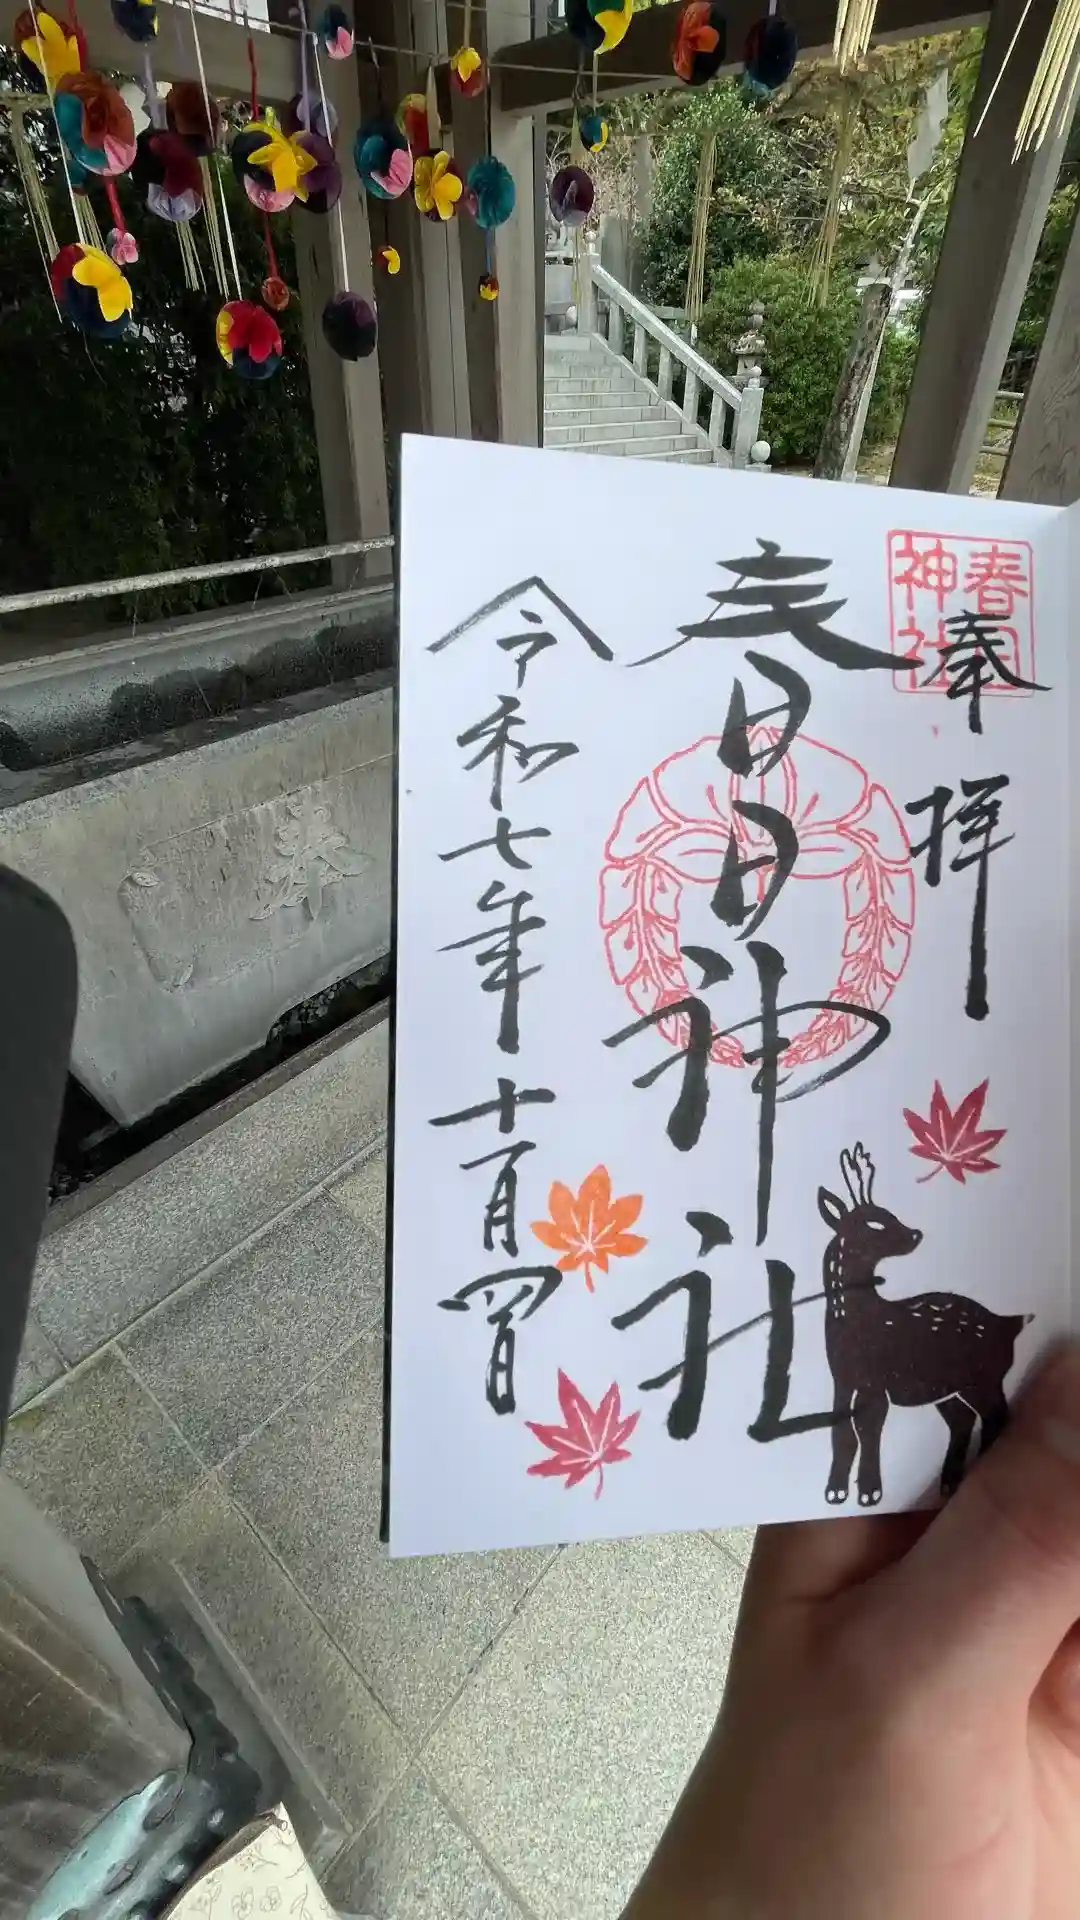 春日
神社
奉拝
春日神社
令和七年十一月四日
奉